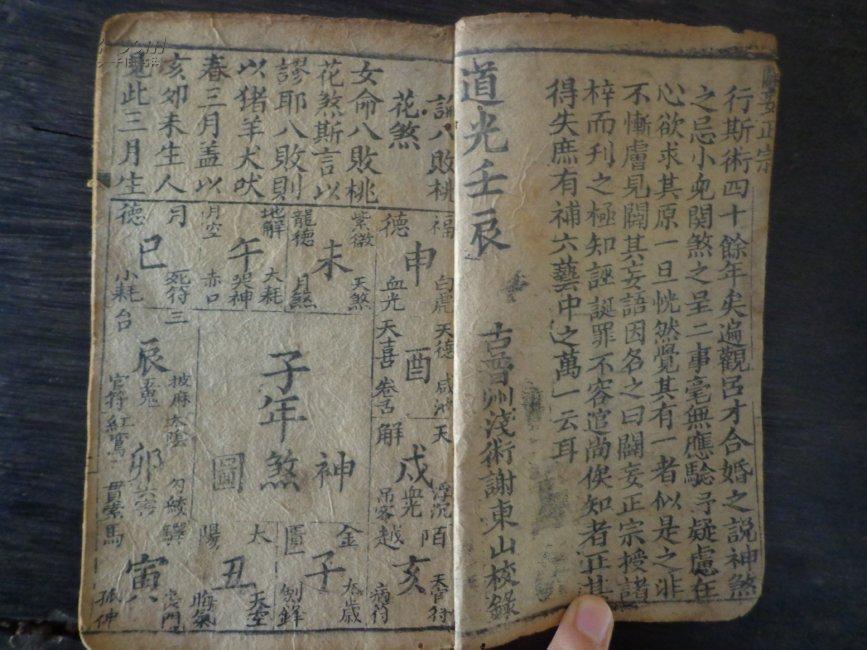 正宗
行斯術四十餘年矣遍觀呂才合婚之說神煞
之忌小兒關煞之呈二事毫無應驗予疑慮在
心欲求其原一旦恍然覺其有一者似是之非
不慚膚見闢其妄語因名之曰闢妄正宗授諸
梓而刊之極知誣誕罪不容逭尚俟知者正其
得失庶有補六藝中之萬一云耳
道光壬辰
古晉州淺術謝東山校錄
八敗桃
花煞
女命八敗桃
花煞斯言以
謬耶八敗則
以猪羊犬吠
春三月蓋以
亥卯未生人
見此三月生
福德
申
白虎
天德
血光
天喜
卷舌
酉
咸池
天解
戌
浮沉
血光
吊客
陌越
亥
天官符
病符
紫微
龍德
未
天煞
月煞
地解
月空
午
大耗
哭神
赤口
月德
巳
死符
小耗
三台
辰
五鬼
官符
披麻
太陰
紅鸞
卯
六害
勾絞
貫索
驛馬
寅
喪門
子年
神煞
圖
太陽
丑
天空
晦氣
金匱
子
太歲
劍鋒